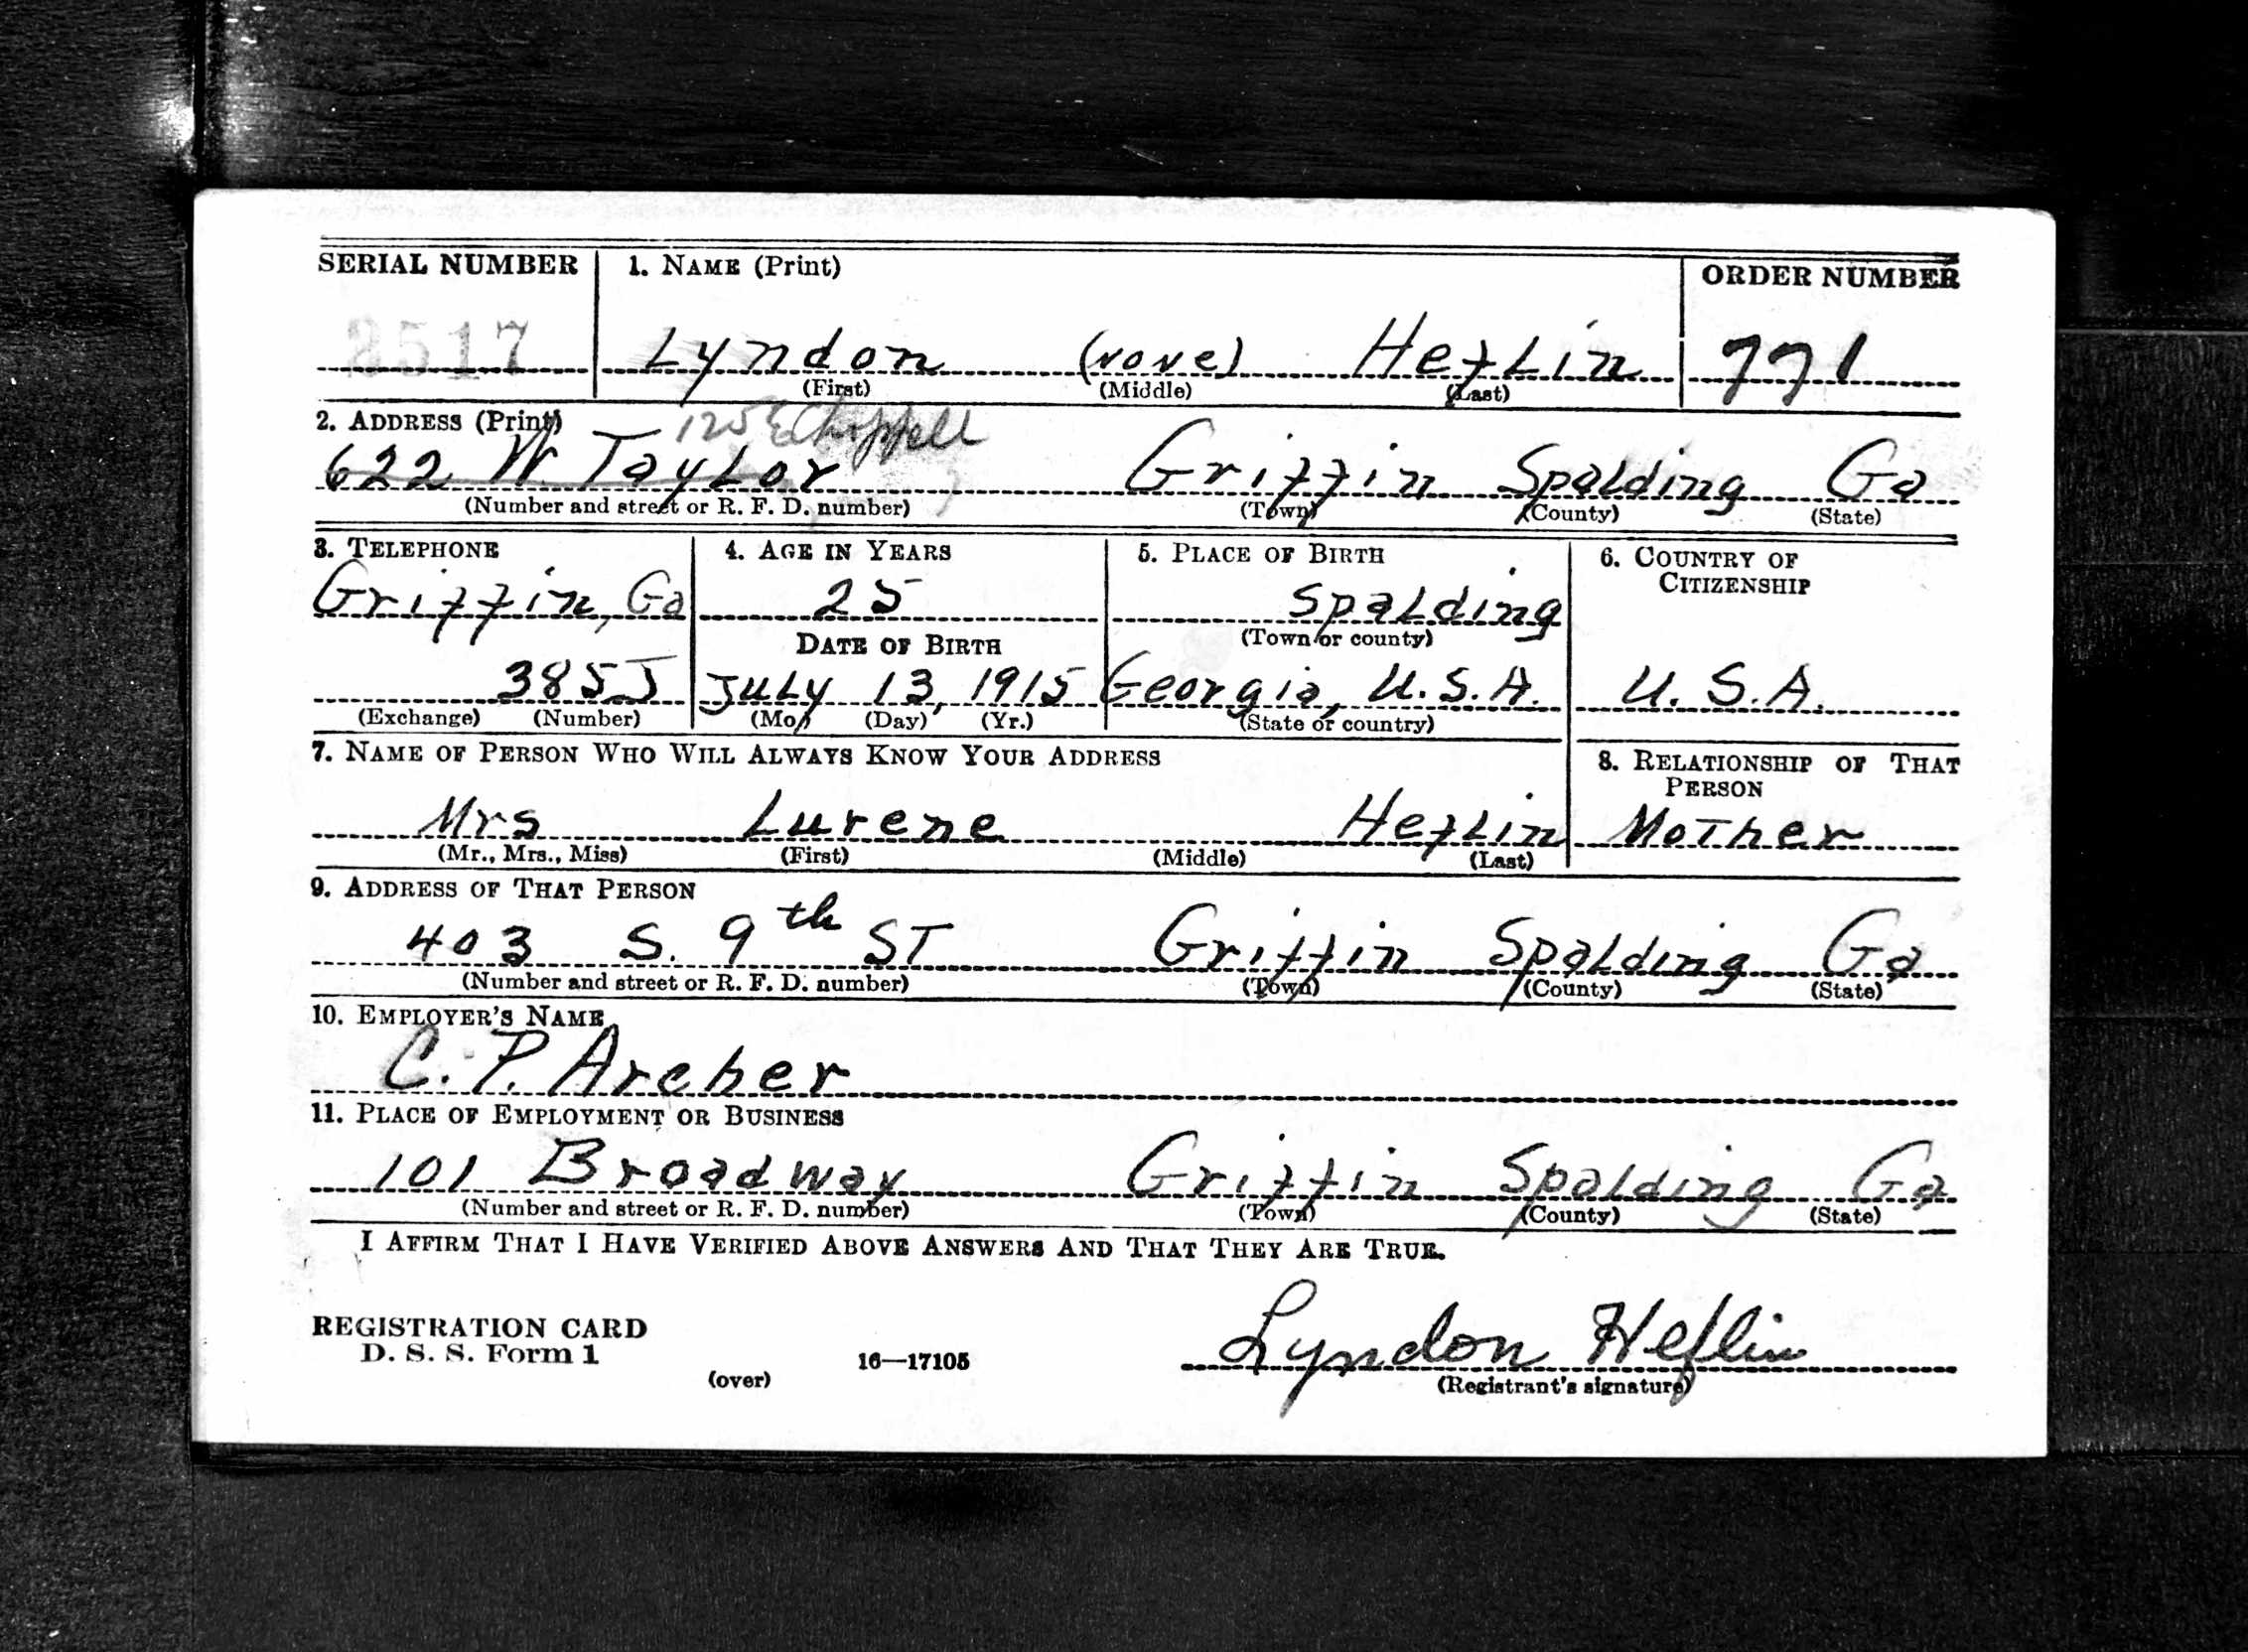 SERIAL NUMBER 1. NAME (Print) ORDER NUMBER
Lyndon (NONE) Heflin 771
(First) (Middle) (Last)
2. ADDRESS (Print) 125 E Chappell
622 W. Taylor Griffin Spalding Ga
(Number and street or R. F. D. number) (Town) (County) (State)
3. TELEPHONE 4. AGE IN YEARS 5. PLACE OF BIRTH 6. COUNTRY OF CITIZENSHIP
Griffin, Ga 25 Spalding
DATE OF BIRTH (Town or county)
385J July 13, 1915 Georgia, U.S.A. U.S.A.
(Exchange) (Number) (Mo.) (Day) (Yr.) (State or country)
7. NAME OF PERSON WHO WILL ALWAYS KNOW YOUR ADDRESS 8. RELATIONSHIP OF THAT PERSON
Mrs Lurene Heflin Mother
(Mr., Mrs., Miss) (First) (Middle) (Last)
9. ADDRESS OF THAT PERSON
403 S. 9th ST Griffin Spalding Ga
(Number and street or R. F. D. number) (Town) (County) (State)
10. EMPLOYER'S NAME
C. P. Archer
11. PLACE OF EMPLOYMENT OR BUSINESS
101 Broadway Griffin Spalding Ga
(Number and street or R. F. D. number) (Town) (County) (State)
I AFFIRM THAT I HAVE VERIFIED ABOVE ANSWERS AND THAT THEY ARE TRUE.
REGISTRATION CARD
D. S. S. Form 1 16—17105 Lyndon Heflin
(over) (Registrant's signature)